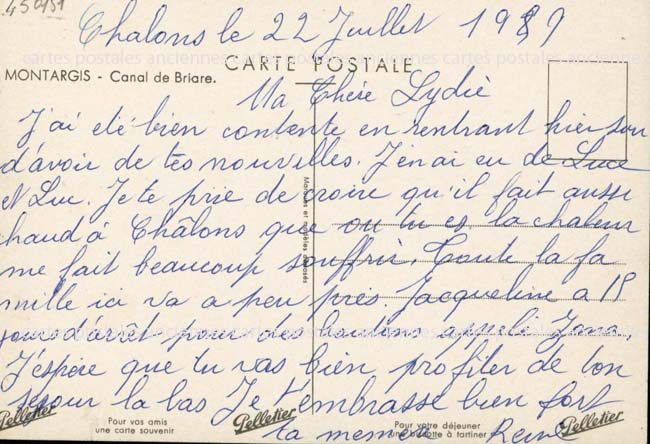 450451
Chalons le 22 Juillet 1989
CARTE POSTALE
MONTARGIS - Canal de Briare.
Ma Chère Lydie
J'ai eté bien contente en rentrant hier soir
d'avoir de tes nouvelles. J'en ai eu de Luce
et Luc. Je te prie de croire qu'il fait aussi
chaud à Châlons que ou tu es, la chaleur
me fait beaucoup souffrir. Toute la fa
mille ici va a peu près. Jacqueline a 15
jours d'arrêt pour des boutons appelé Zona.
J'espère que tu vas bien profiter de ton
sejour la bas Je t'embrasse bien fort
ta memere Reine
Modèles et modèles déposés
Pelletier
Pour vos amis
une carte souvenir
Pelletier
Pour votre déjeuner
une biscotte à tartiner
Pelletier
cartes postales anciennes cartes postales anciennes cartes postales anciennes